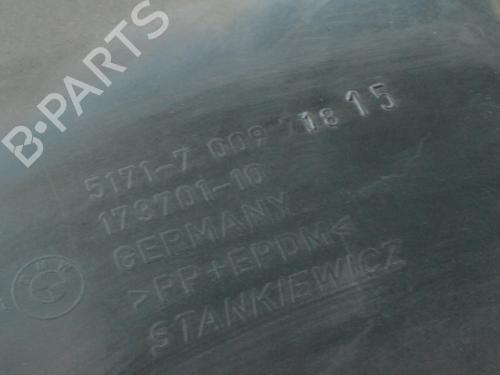 B-PARTS
5171-7 009 71815
173701-10
GERMANY
>PP+EPDM<
STANKIEWICZ
BMW